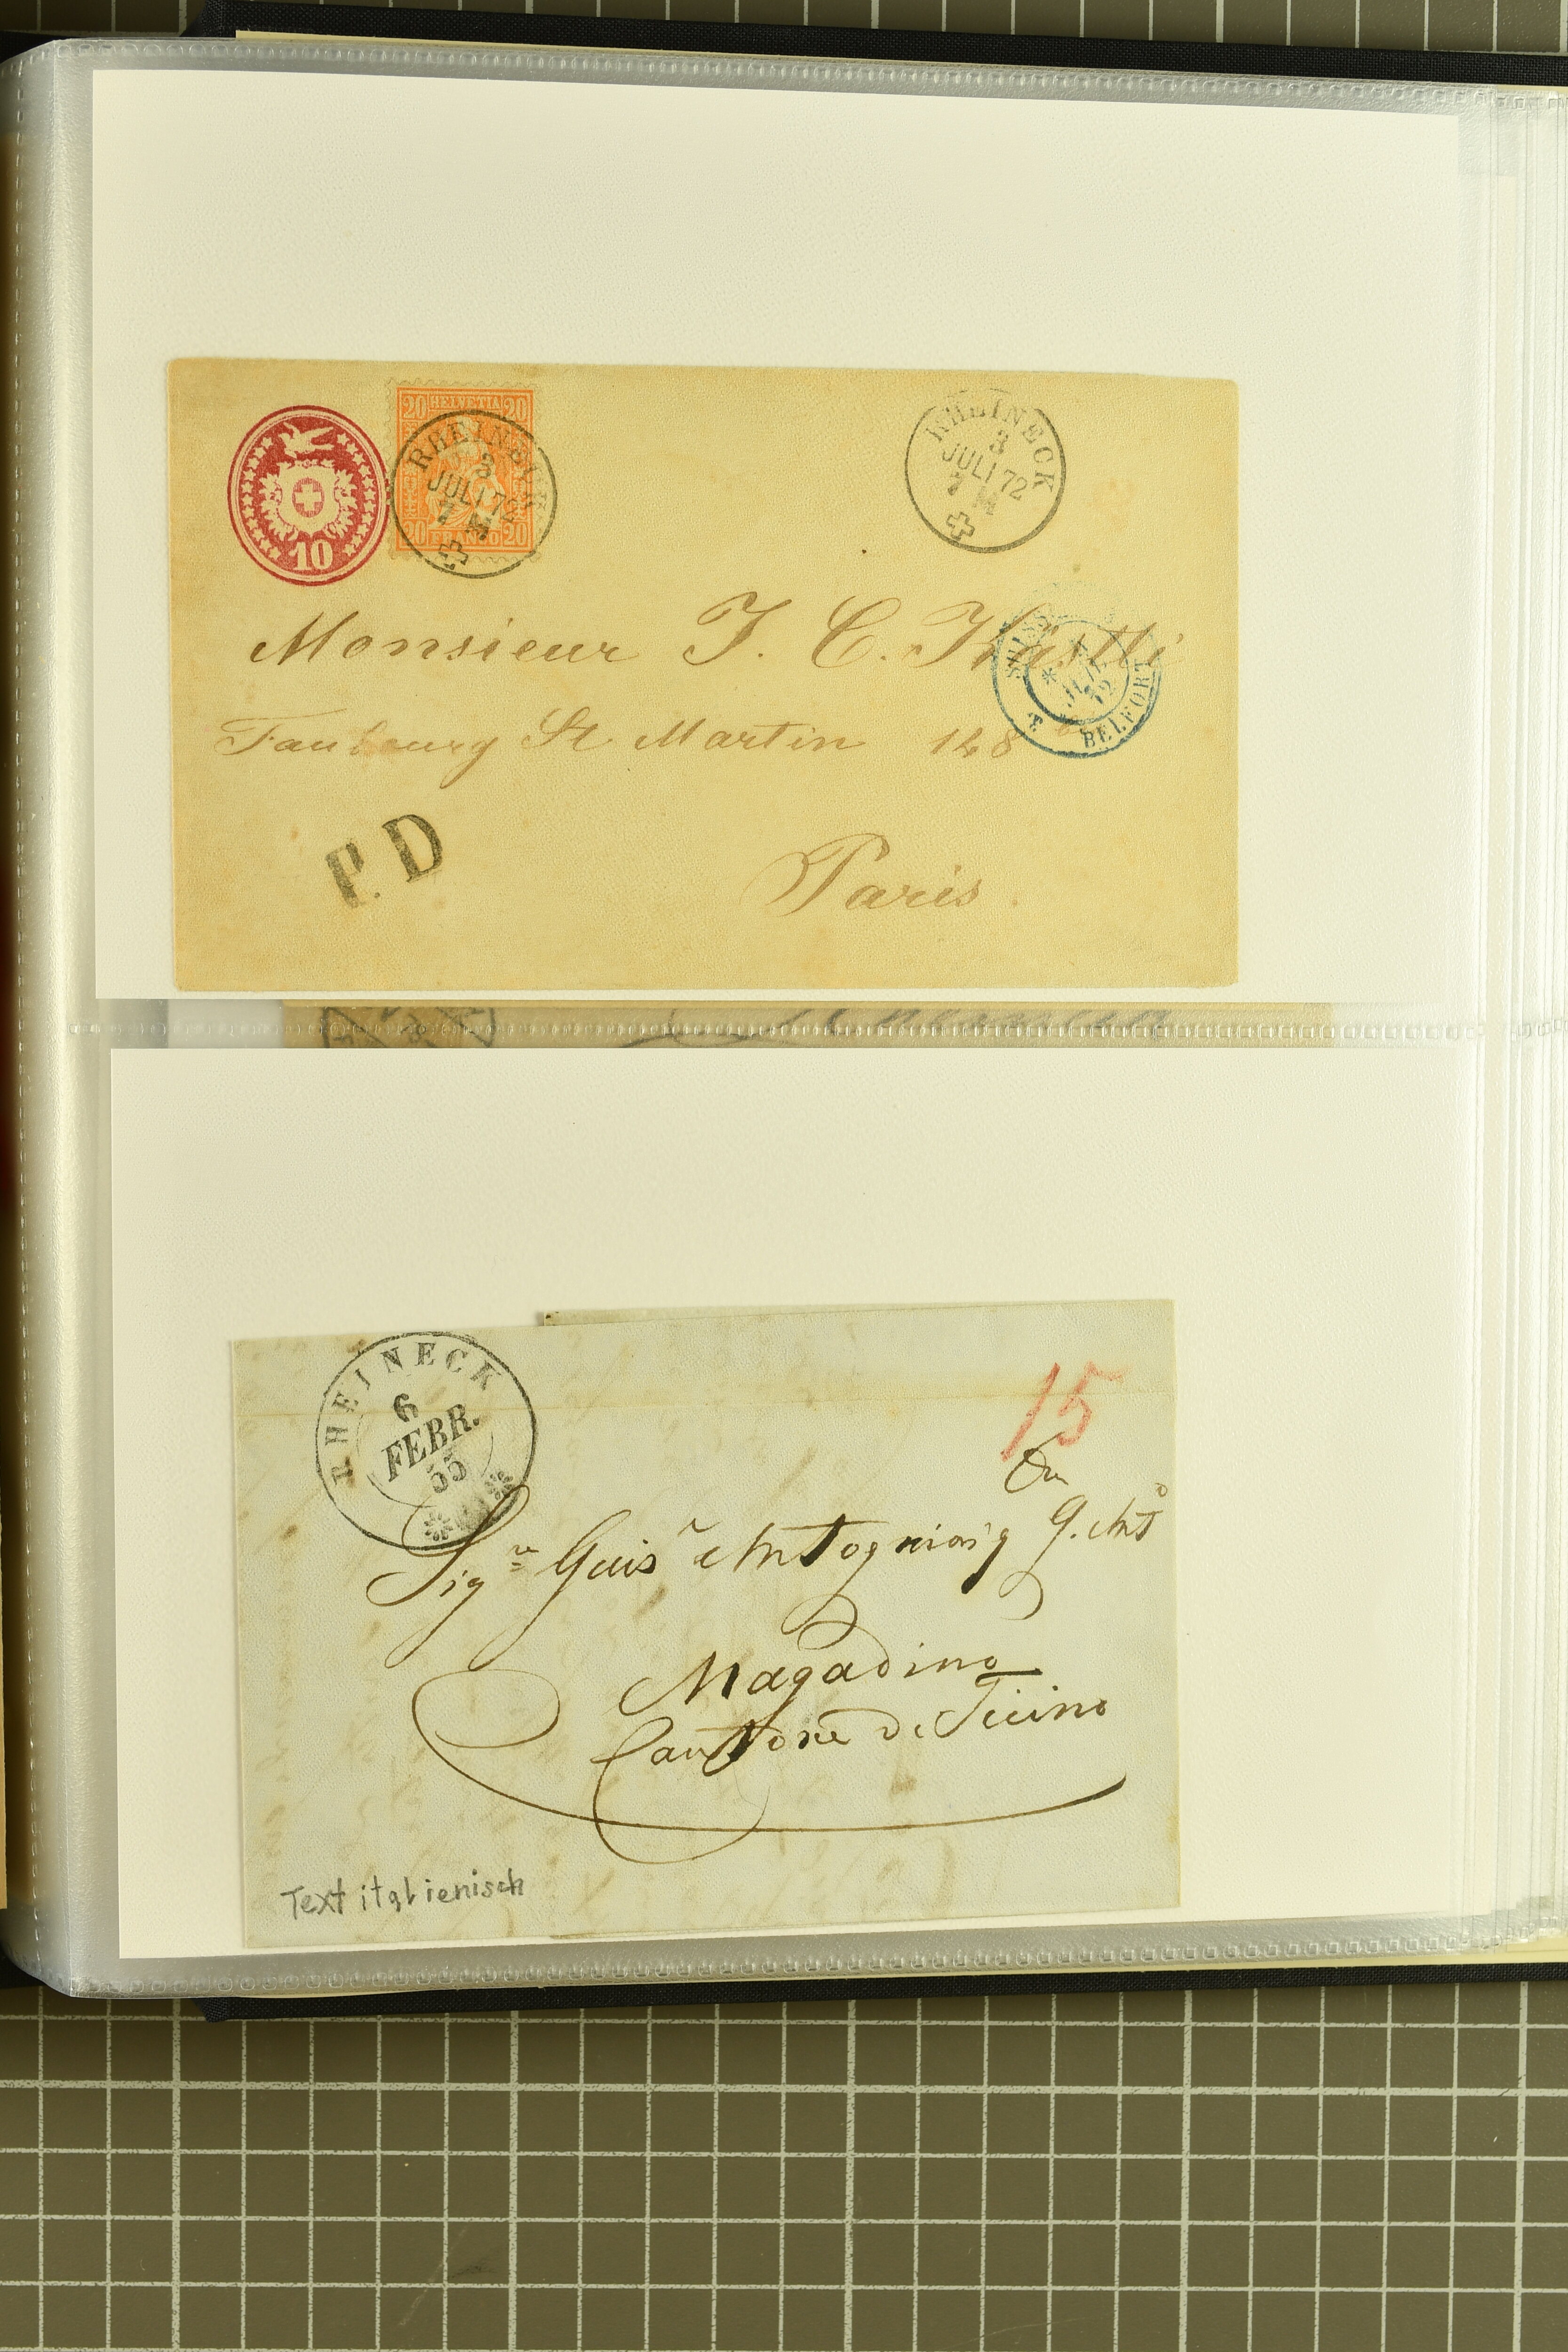 20 HELVETIA 20
20 FRANCO 20
10
RHEINECK
3
JULI 72
7
RHEINECK
3
JULI 72
7
Monsieur J. C.
SUISSE
4
JUIL
72
BELFORT
Faubourg St Martin 148
P.D
Paris.
RHEINECK
6
FEBR.
55
15
Magadino
Cantone di Ticino
Text italienisch